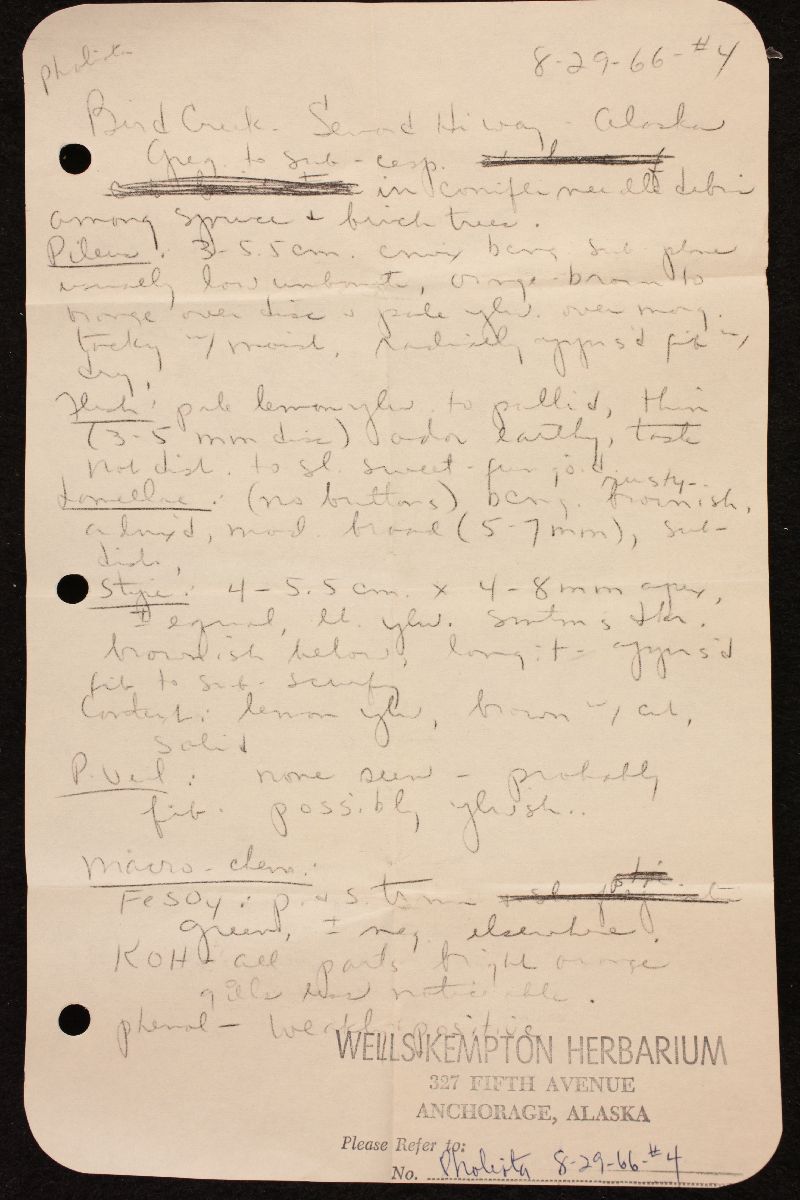 Pholiota
8-29-66-#4
Bird Creek - Seward Hiway - Alaska
Greg. to sub-cesp.
in conifer needle debris
among spruce & birch trees.
Pileus: 3-5.5 cm. cnvx bcmg sub-plane
usually low umbonate, orange-brown to
orange over disc & pale ylw. over marg.
tacky w/ moist, radially apprs'd fib w/
dry,
Flesh: pale lemon ylw. to pallid, thin
(3-5 mm disc) odor earthy, taste
not dist. to sl. sweet-fungoid
Lamellae: (no buttons) bcmg. rusty-brownish,
adnx'd, mod. broad (5-7 mm), sub-
dist,
Stipe: 4-5.5 cm. x 4-8 mm apex,
± equal, lt. ylw. smtms dkr.
brownish below, longit- apprs'd
fib to sub-scurfy
Context: lemon ylw, brown w/ cut,
solid
P. Veil: none seen - probably
fib. possibly ylwsh..
Macro-chem.:
FeSO4: p. & s. trma
green, ± neg. elsewhere.
KOH - all parts bright orange
gills less noticeable.
phenol - weakly positive
WELLS-KEMPTON HERBARIUM
327 FIFTH AVENUE
ANCHORAGE, ALASKA
Please Refer to:
No. Pholiota 8-29-66-#4